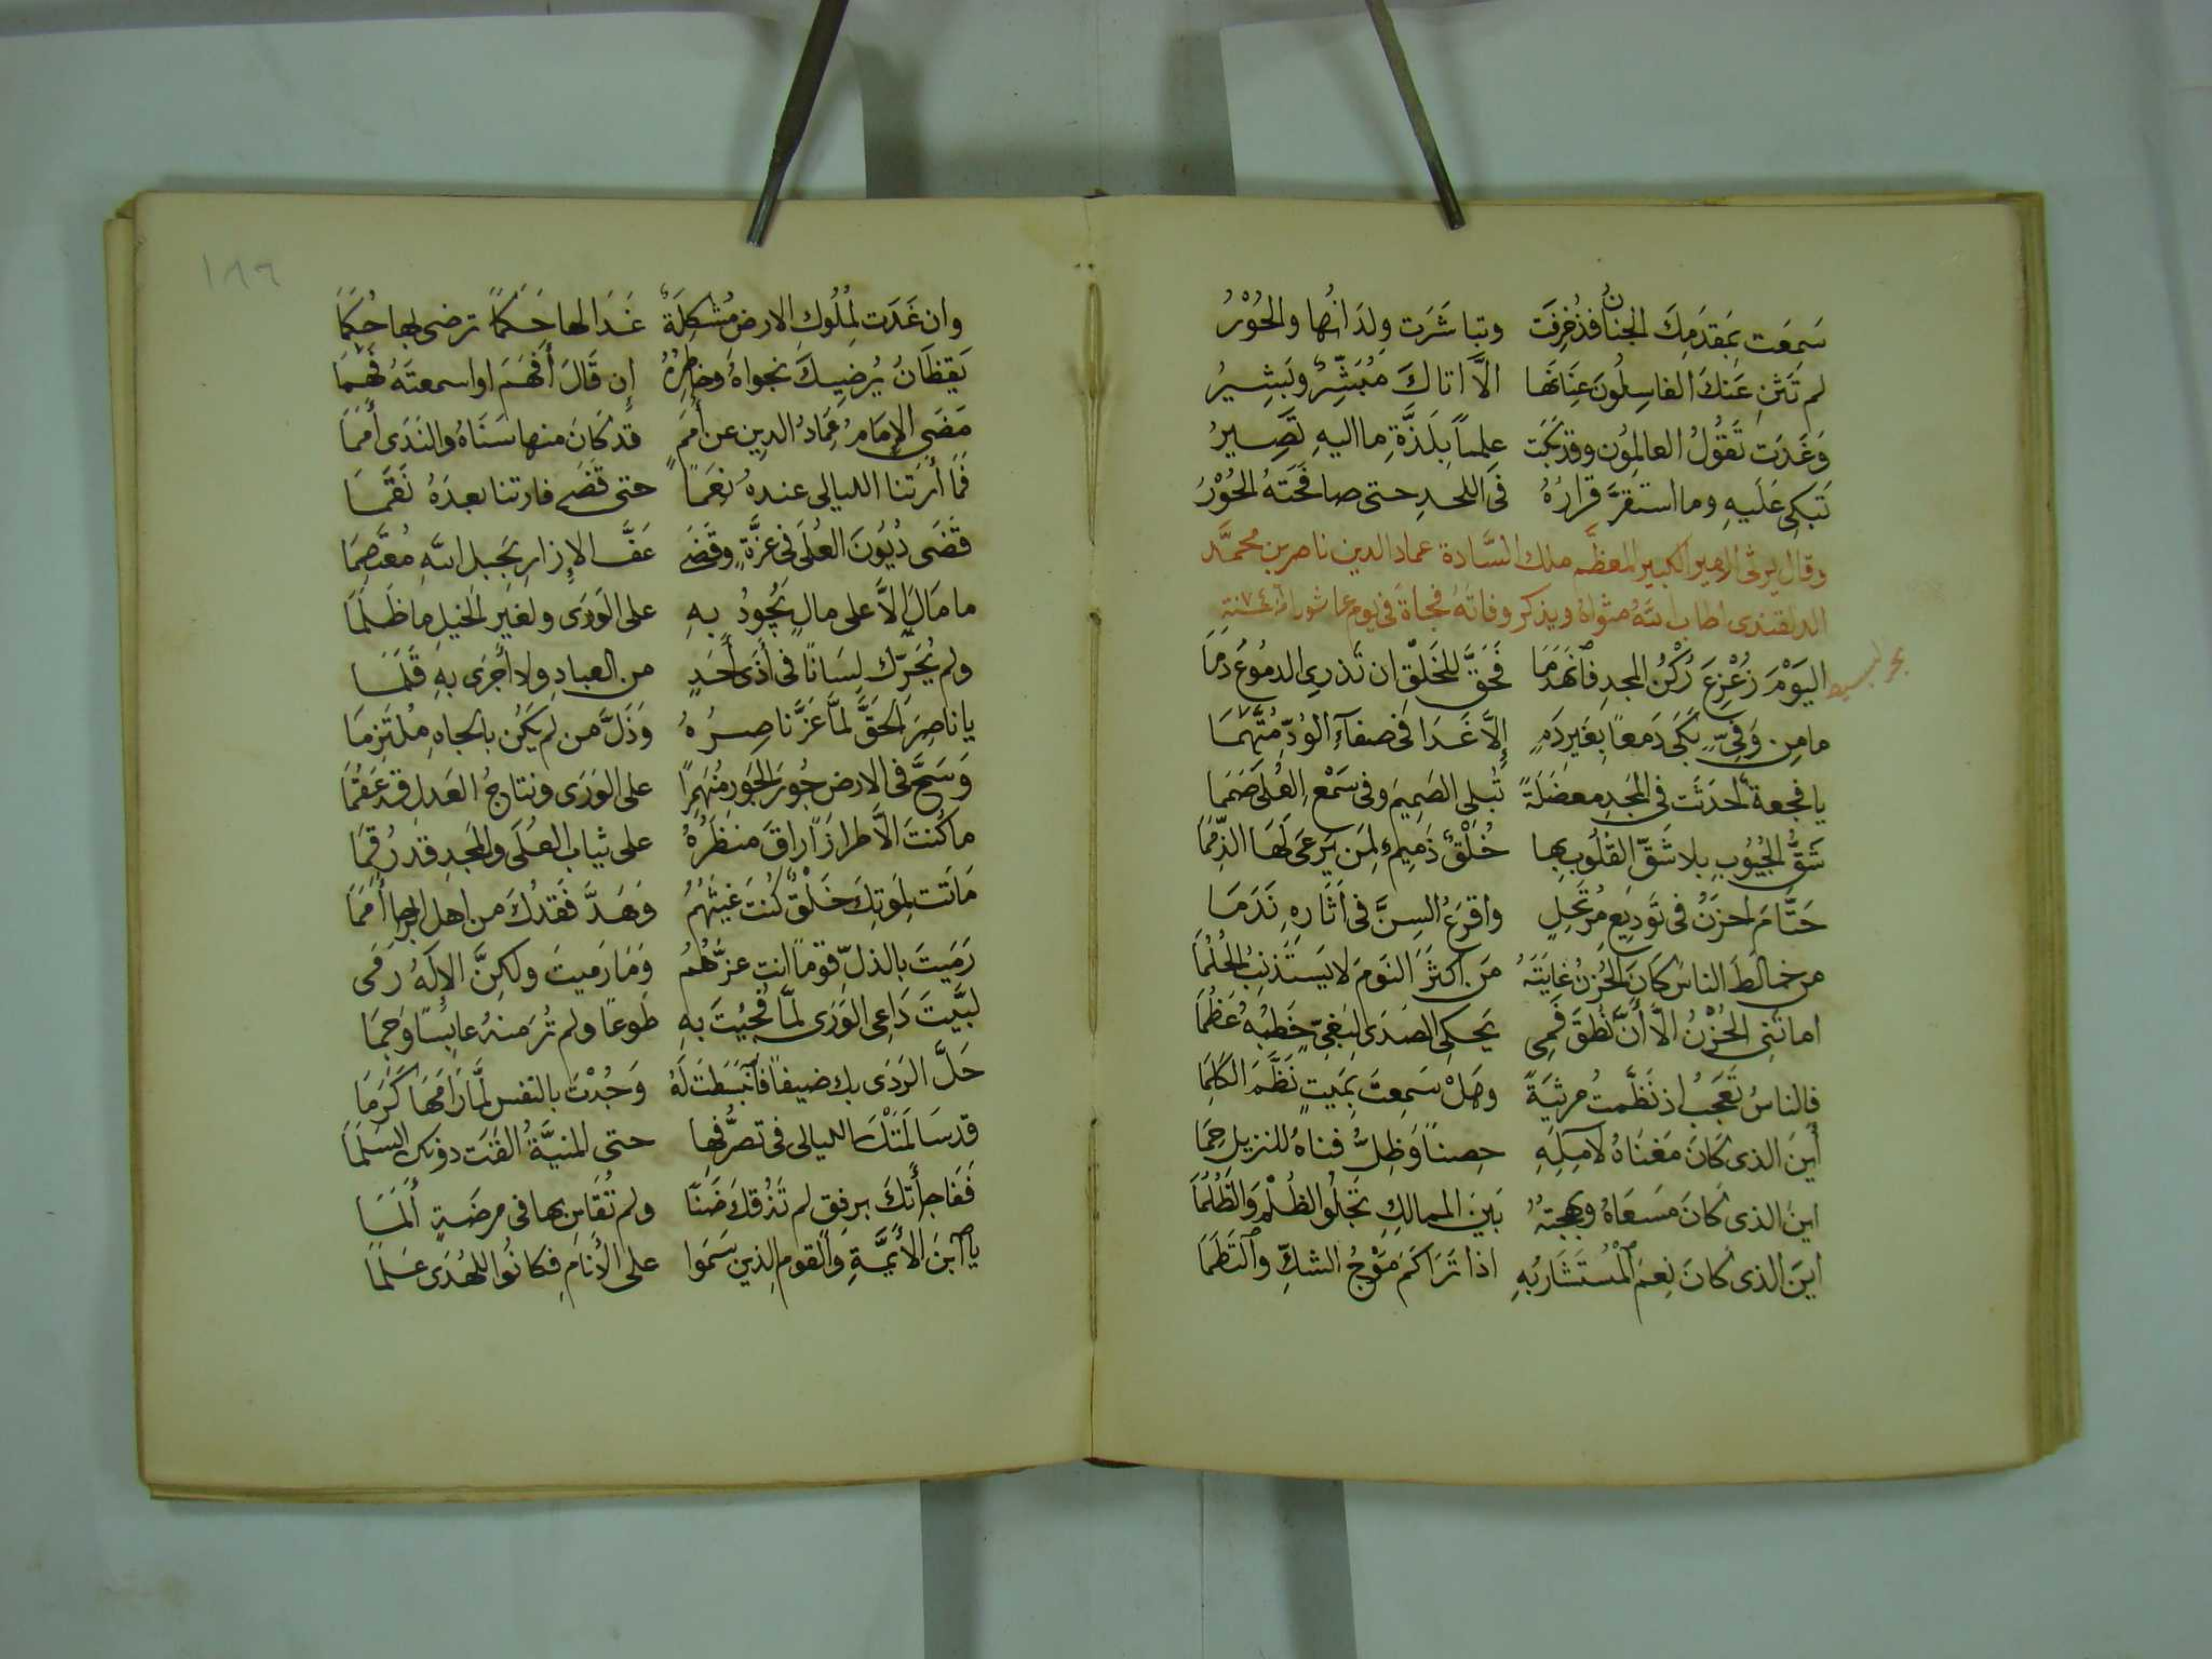 سَمِعَت بِمَقدَمِكَ الجنانُ فزُخرِفَت وتباشَرَت وِلدَانُها والحُوْرُ
لم تَثنِ عَنكَ الغاسِلُونَ عِنَانَها الَّا اتاكَ مُبَشِّرٌ وبَشِيرُ
وَغَدَت تَقُولُ العالِمُون وقد بَكَت علماً بِلَذَّةِ ما اليهِ تَصِيرُ
تَبكى عَلَيهِ وما استَقَرَّ قرارُهُ فى اللحدِ حتى صافحَتهُ الحُوْرُ
وقال يرثى الامير الكبير المعظَّم ملك السَّادة عماد الدين ناصر بن محمَّد
الدلقندى اطاب اللهُ مثواهُ ويذكر وفاتهُ فجاةً فى يوم عاشوراء سنة ٧٤
بحر البسيط
اليَوْمَ زُعْزِعَ رُكْنُ المجدِ فَٱنهَدَمَا فَحَقَّ للخَلْقِ ان تَذرِى الدمُوعَ دَمَا
ما مِن وَفِىٍّ بَكَى دَمعًا بِغَيرِ دَمٍ إِلَّا غَدَا فى صفآءِ الوُدِّ مُتَّهَمَا
يا فجعةً احدَثَت فى المَجدِ معضَلَةً تُبلى الصَمِيمَ وفى سَمْعِ العُلَى صَمَمَا
شَقُّ الجُيُوبِ بِلا شَقِّ القُلُوبِ بها خُلْقٌ ذَمِيمٌ لِمَن يَرعَى لَهَا الذِّمَمَا
حَتَّامَ احزَنُ فى تَودِيعِ مُرتَحِلٍ واقرَعُ السِنَّ فى اَثَارِهِ نَدَمَا
من خالَطَ الناسَ كانَ الحُزنُ غايَتَهُ مَن اكثَرَ النَومَ لا يَستَذنِبُ الحُلُمَا
اماتَنِى الحُزْنُ الَّا أَنَّ نُطقَ فَمِى يَحكِى الصَدَى لِبَغِىٍّ خَطبُهُ عَظُمَا
فالناسُ تَعجَبُ اذ نَظَّمتُ مرثيَةً وهَلْ سَمِعتَ بِمَيتٍ نَظَّمَ الكَلِمَا
أَينَ الذى كَانَ مَغنَاهُ لآمِلِهِ حِصنناً وَظِلُّ فناهُ للنزيل حِمَا
اينَ الذى كَانَ مَسعَاهُ وبهجتهُ بَينَ الممالِكِ تَجلُو الظُلْمَ وَالظُلُمَا
اينَ الذى كانَ نِعمَ ٱلْمُستَشَارُ بِهِ اذا تَرَاكَمَ مَوْجُ الشكِّ وٱلتَطَمَا
١٨٦
وان غَدَت لِمُلُوكِ الارضِ مُشكِلَةٌ غَدَا لها حَكَماً ترضى بها حُكَمَا
يَقظَانُ يُرضِيكَ نجواهُ وخاطِرُهُ إِن قَالَ أَفهَمَ او اسمعتَهُ فَهِمَا
مَضَى الإِمَامُ عِمَادُ الدِينِ عن أَمَمٍ قد كَانَ منها سَنَاهُ والنَدَى أَمَمَا
فَمَا أَرَتنا الليالى عندهُ نِعَمًا حتى قَضَى فارتنا بعدَهُ نَقَمَا
قَضَى دُيُونَ العُلَى فى عزَّةٍ وقَضَى عَفَّ الإِزارِ بحَبلِ اللهِ مُعتَصِمَا
ما مَالَ إِلاَّ على مالٍ يَجُودُ بِهِ على الوَرَى ولغَيرِ الخيلِ ما ظَلَمَا
ولم يُحَرِّك لِسَانًا فى أَذَى أَحَدٍ من العبادِ ولا أَجرَى بهِ قَلَمَا
يا ناصِرَ الحَقَّ لمَّا عَزَّ ناصِرُهُ وَذَلَّ من لم يَكُن بالجاهِ مُلتَزِمَا
وَسَحَّ فى الارضِ جُورَ الجَورِ مُنهَمِرًا على الوَرَى ونتاجُ العَدلِ قد عَقُمَا
ما كُنتَ الاَّ طرازًا راقَ منظَرُهُ على ثيابِ العُلَى والمَجدِ قد رُقِمَا
مَاتت بِمَوتِكَ خَلْقٌ كُنتَ غيثَهُمُ وَهَدَّ فَقدُكَ من اهلِ الرجا أُمَمَا
رَمَيتَ بالذلِّ قومًا انت عزُّهُمُ وَمَا رَميتَ ولكِنَّ الإِلَهَ رَمَى
لبَّيتَ دَاعِى الوَرَى لمَّا فُجِيْتَ بهِ طَوعًا ولم تُرَ منهُ عابِسًا وَجِمَا
حَلَّ الرَدَى بك ضيفاً فَٱنبَسَطتَ لَهُ وَجُدْتَ بالنفس لمَّا رَامَهَا كَرَمَا
قد سَالَمَتْكَ الليالى فى تصرُّفِها حتى المنيَّةُ القَت دونك السَلَمَا
فَفَاجأَتكَ برفقٍ لم تَذُقكَ ضَنًا ولم تُقَاسِ بها فى مرضَةٍ أَلَمَا
يا ٱبنَ الأَيِمَّةِ والقوم الذين سَمَوا على الأَنامِ فكانُوا للهُدَى عَلَمَا